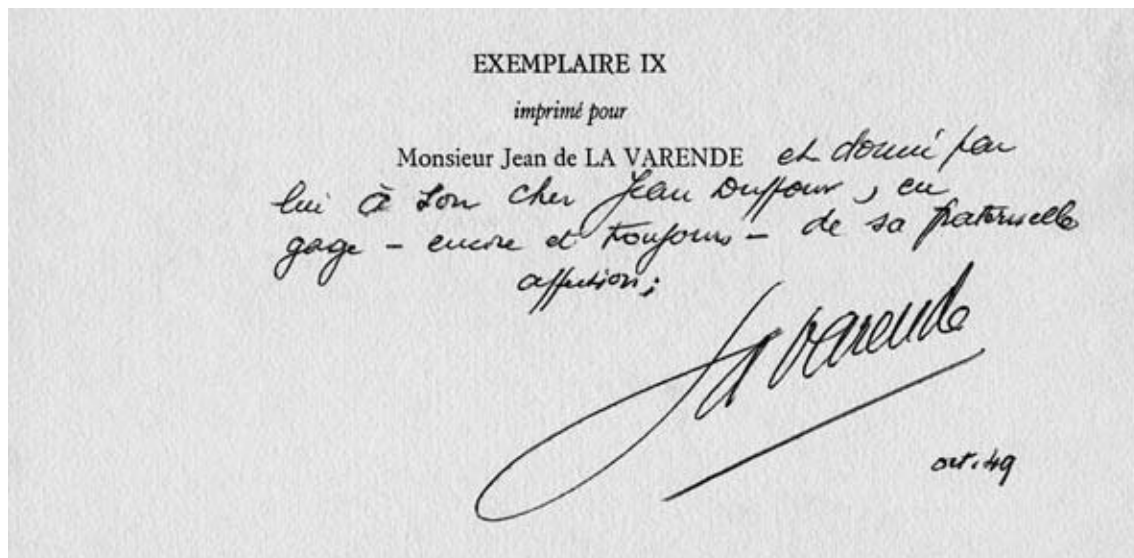 EXEMPLAIRE IX
imprimé pour
Monsieur Jean de LA VARENDE et donné par
lui à son cher Jean Duffour, en
gage – encore et toujours – de sa fraternelle
affection ;
La Varende
oct. 49